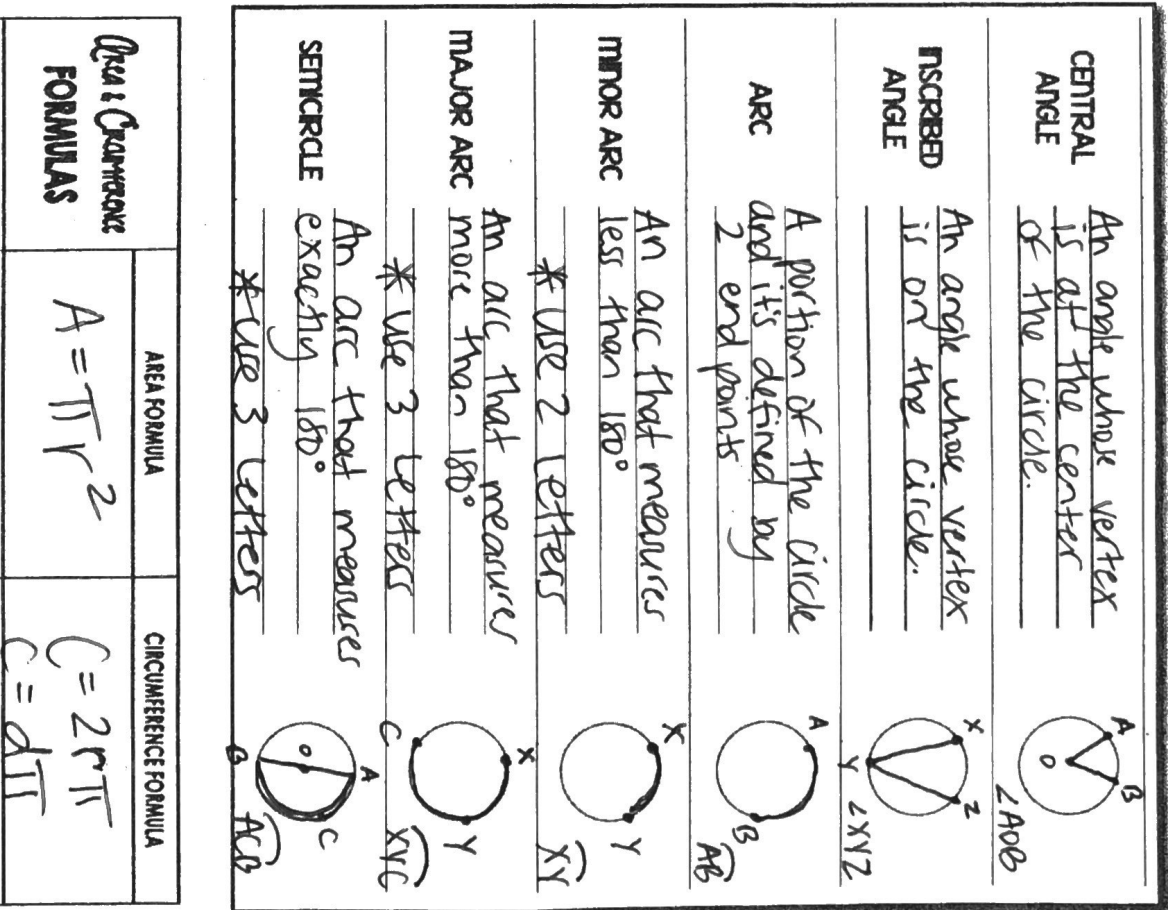 CENTRAL
ANGLE
An angle whose vertex
is at the center
of the circle.
A
B
O
∠AOB
INSCRIBED
ANGLE
An angle whose vertex
is on the circle.
X
Z
Y
∠XYZ
ARC
A portion of the circle
and it's defined by
2 end points
A
B
AB
MINOR ARC
An arc that measures
less than 180°
*use 2 letters
X
Y
XY
MAJOR ARC
An arc that measures
more than 180°
*use 3 letters
X
Y
C
XYC
SEMICIRCLE
An arc that measures
exactly 180°
*use 3 letters
A
O
C
B
ACB
AREA FORMULA
CIRCUMFERENCE FORMULA
Area & Circumference
FORMULAS
A = πr²
C = 2rπ
C = dπ